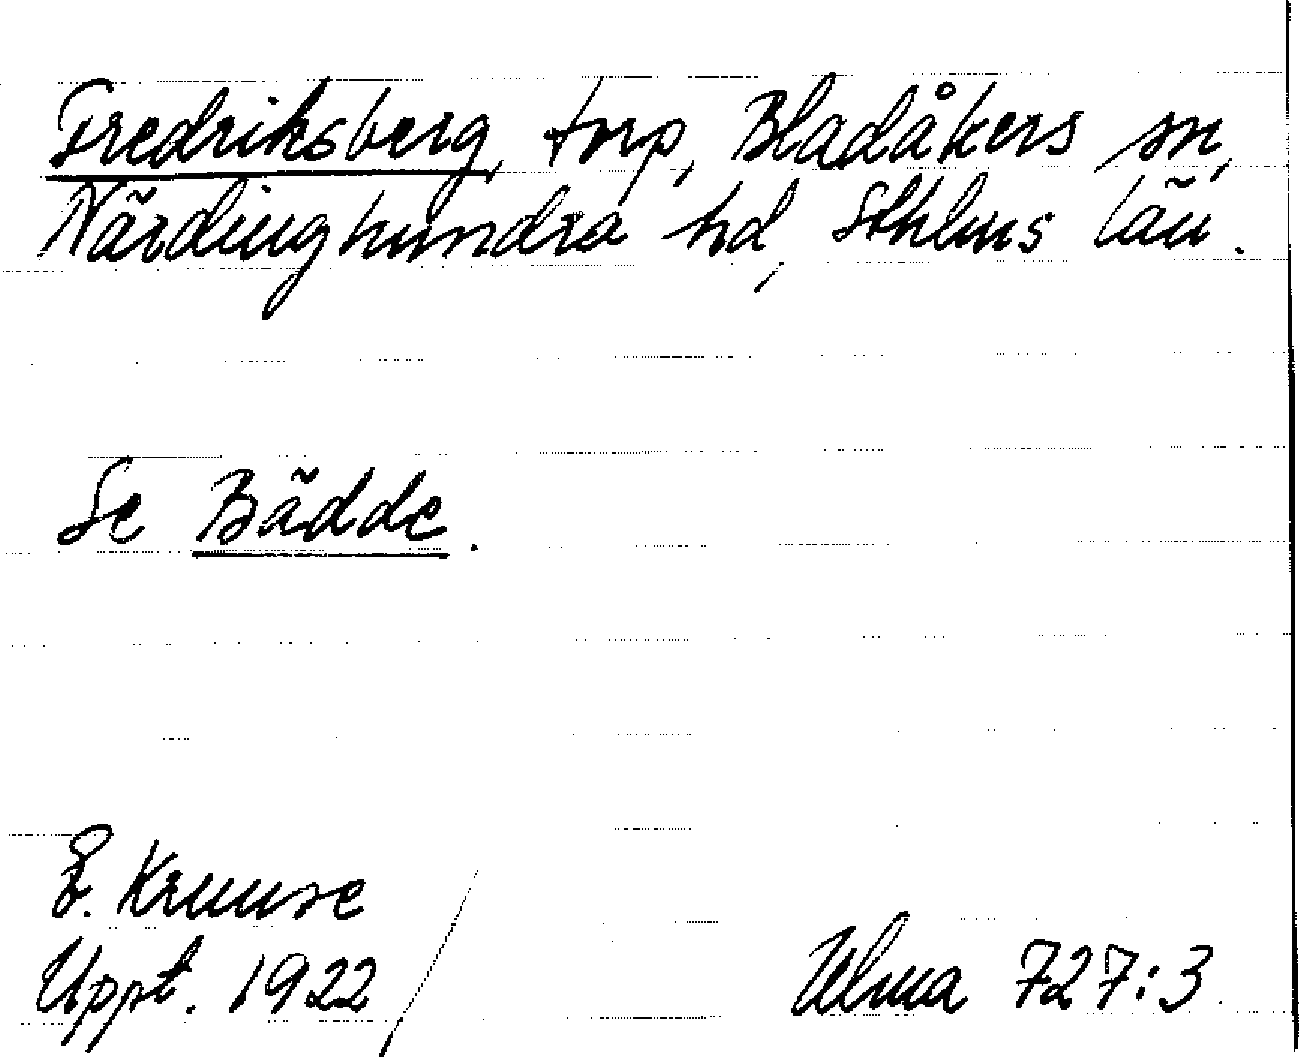 Fredriksberg, torp, Bladåkers sn,
Närdinghundra hd, Sthlms län.
Se Bädde.
E. Kruuse
Uppt. 1922
Ulma 727:3